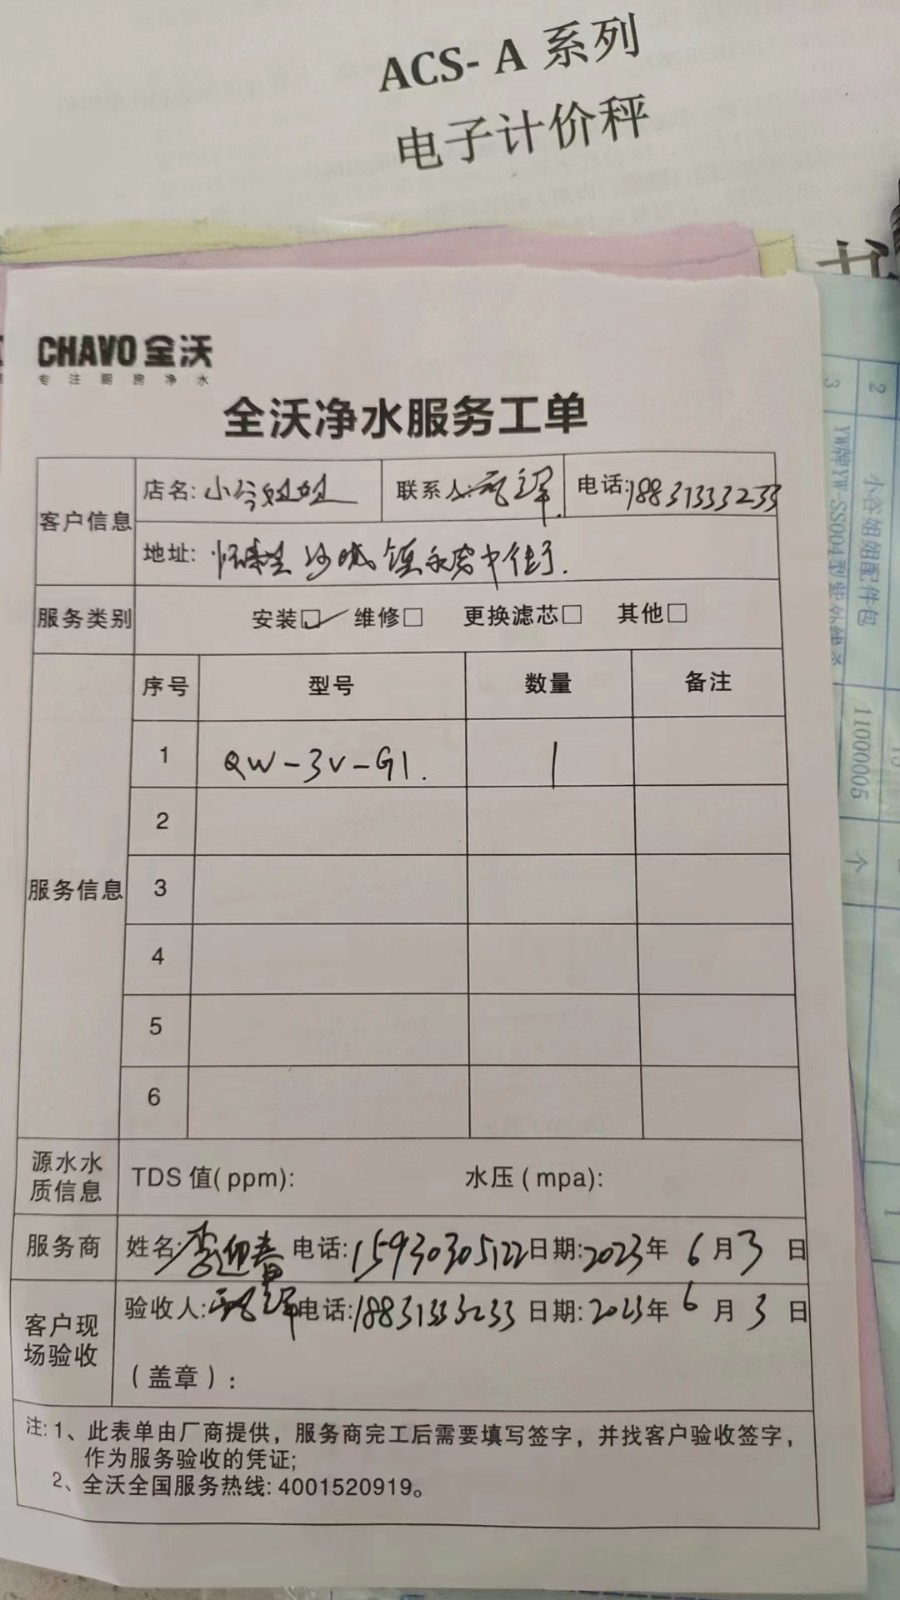 ACS- A 系列
电子计价秤
CHAVO 全沃
专注厨房净水
全沃净水服务工单
客户信息
店名: 小谷姐姐
联系人:
电话: 18831333233
地址: 怀来 沙城镇 中街.
服务类别
安装☑ 维修□ 更换滤芯□ 其他□
服务信息
序号 型号 数量 备注
1 QW-3V-G1. 1
2
3
4
5
6
源水水
质信息
TDS 值(ppm): 水压(mpa):
服务商
姓名: 李迎春 电话: 15930305122 日期: 2023年 6月3日
客户现
场验收
验收人: 电话: 18831333233 日期: 2023年 6月3日
(盖章):
注: 1、此表单由厂商提供，服务商完工后需要填写签字，并找客户验收签字，
作为服务验收的凭证;
2、全沃全国服务热线: 4001520919。
2
小谷姐姐配件包
11000005
个
3